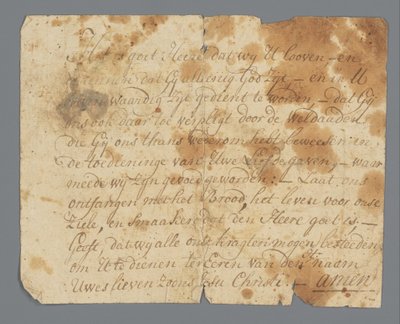 Het is goet Heere dat wij U Looven – en
dat Gij alleenig God zyt – en in U
waardig zyt gedient te worden – dat Gij
ons ook daar toe verpligt door de Weldaaden
die Gij ons thans wederom hebt beweesen in
de toedieninge van Uwe Liefde gaven, – waar
meede wij zijn gevoed geworden: – Laat ons
ontfangen met het Brood, het leven voor onse
Ziele, en Smaaken dat den Heere goet is –
Geeft, dat wy alle onse kragten mogen besteeden
om U te dienen ter Eeren van den naam
Uwes lieven Zoons Jesu Christi. – amen